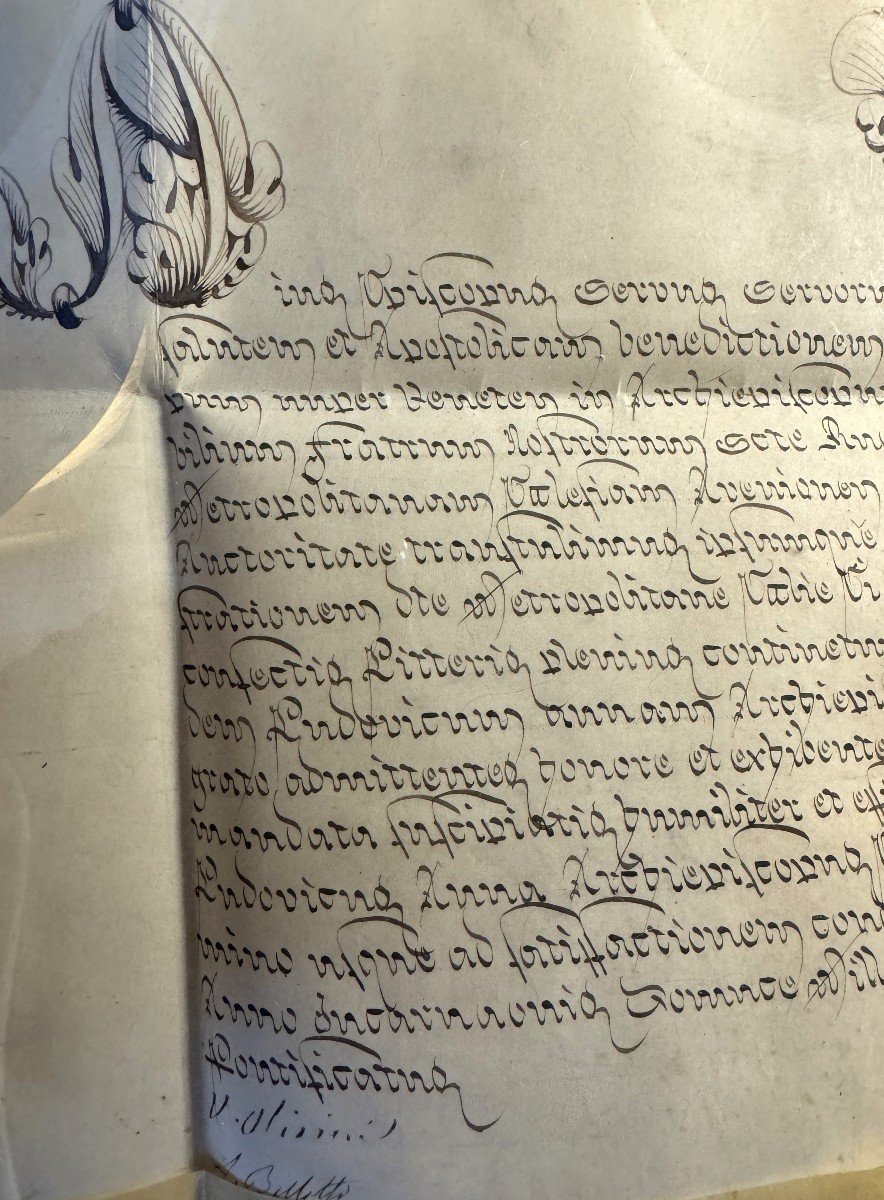 ius Episcopus Servus Servoru
salutem et Apostolicam benedictionem
pum nuper Veneten in Archiepiscopu
bilium Fratrum Nostrorum Scte
Metropolitanam Ecclesiam Avenionen
Auctoritate transtulimus ipsumque
strationem dte Metropolitane Ecclie
confectis Litteris plenius continetu
dem Ludovicum Annam Archiepi
grato admittentes honore et exhibente
mandata suscipiatis humiliter et ef
Ludovicus Anna Archiepiscopus
mino usque ad satisfactionem con
Anno Incarnaonis Domince Mill
Pontificatus